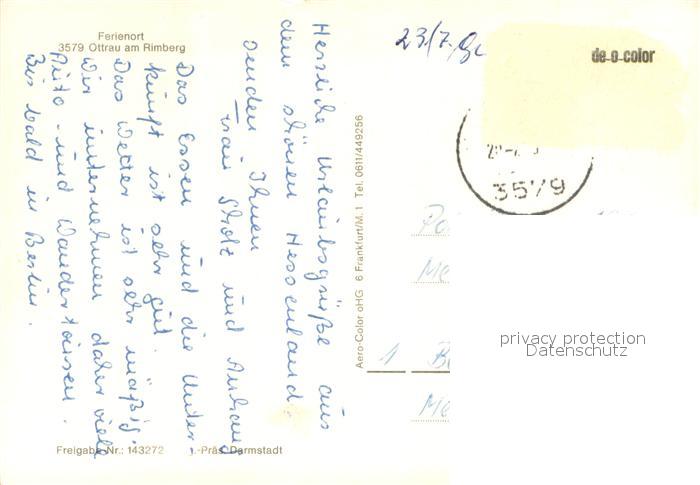 Ferienort
3579 Ottrau am Rimberg
23/7.
de-o-color
3579
Herrliche Urlaubsgrüße aus
dem schönen Hessenland.
senden Ihnen
Frau Stolz und Anhang
Das Essen und die Unter-
kunft ist sehr gut.
Das Wetter ist sehr mäßig.
Wir unternehmen daher viele
Auto- und Wandertouren.
Bis bald in Berlin.
Aero-Color oHG 6 Frankfurt/M. 1 Tel. 0611/449256
1 B
Me
Freigabe Nr.: 143272 .-Präs. Darmstadt
privacy protection
Datenschutz